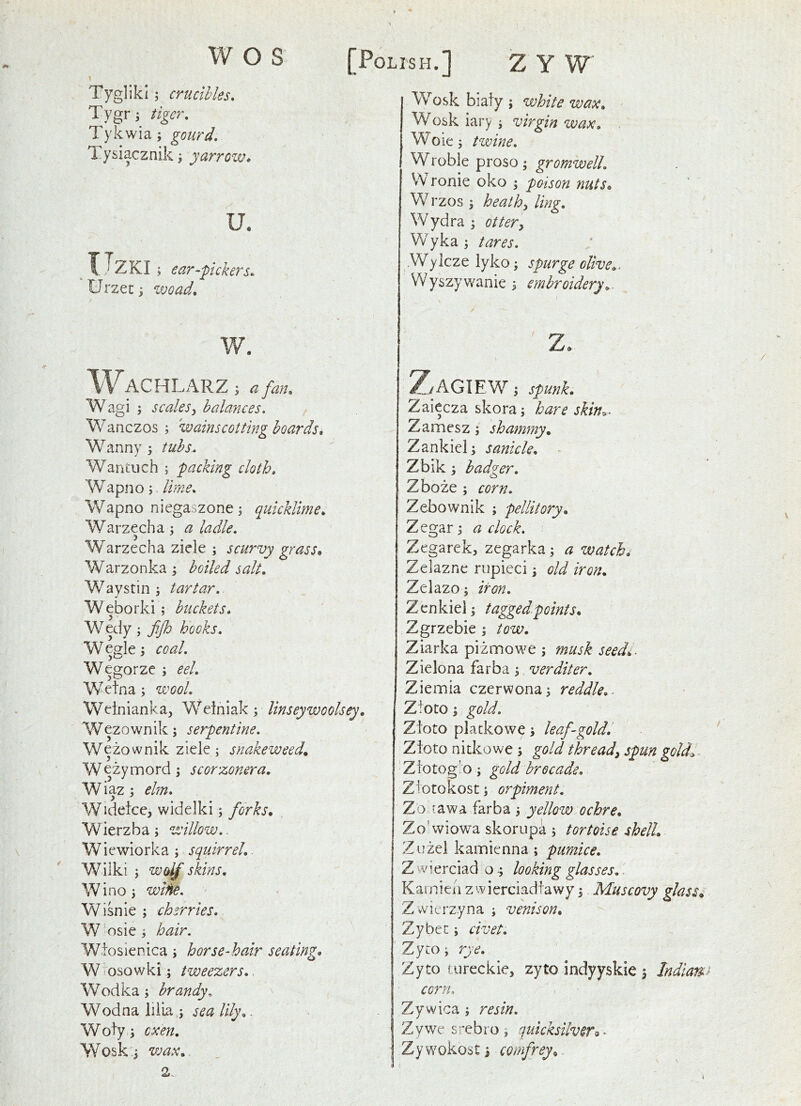 WOS [POLISH.] ZYW
Tygliki ; crucibles.
Tygr ; tiger.
Tykwia ; gourd.
Tysiącznik ; yarrow.
U.
UZKI ; ear-pickers.
Urzet ; woad.
W.
WACHLARZ ; a fan.
Wagi ; scales, balances.
Wanczos ; wainscotting boards.
Wanny ; tubs.
Wantuch ; packing cloth.
Wapno ; lime.
Wapno niegaszone ; quicklime.
Warzęcha ; a ladle.
Warzecha ziele ; scurvy grass.
Warzonka ; boiled salt.
Waystin ; tartar.
Węborki ; buckets.
Wędy ; fish hooks.
Węgle ; coal.
Węgorze ; eel.
Wełna ; wool.
Wełnianka, Wełniak ; linseywoolsey.
Węzownik ; serpentine.
Wężownik ziele ; snakeweed.
Wężymord ; scorzonera.
Wiąz ; elm.
Widełce, widelki ; forks.
Wierzba ; willow.
Wiewiorka ; squirrel.
Wilki ; wolf skins.
Wino ; wine.
Wiśnie ; cherries.
W osie ; hair.
Włosienica ; horse-hair seating.
W osowki ; tweezers.
Wodka ; brandy.
Wodna lilia ; sea lily.
Woły ; oxen.
Wosk ; wax.
2
Wosk biały ; white wax.
Wosk iary ; virgin wax.
Woie ; twine.
Wroble proso ; gromwell.
Wronie oko ; poison nuts.
Wrzos ; heath, ling.
Wydra ; otter,
Wyka ; tares.
Wylcze lyko ; spurge olive.
Wyszywanie ; embroidery.
Z.
ZAGIEW ; spunk.
Zaięcza skora ; hare skin.
Zamesz ; shammy.
Zankiel ; sanicle.
Zbik ; badger.
Zboże ; corn.
Zebownik ; pellitory.
Zegar ; a clock.
Zegarek, zegarka ; a watch.
Zelazne rupieci ; old iron.
Zelazo ; iron.
Zenkiel ; tagged points.
Zgrzebie ; tow.
Ziarka piżmowe ; musk seed.
Zielona farba ; verditer.
Ziemia czerwona ; reddle.
Złoto ; gold.
Złoto płatkowe ; leaf-gold.
Złoto nitkowe ; gold thread, spun gold.
Złotog o ; gold brocade.
Złotokost ; orpiment.
Zo tawa farba ; yellow ochre.
Zo wiowa skorupa ; tortoise shell.
Zużel kamienna ; pumice.
Zwierciad o ; looking glasses.
Kamień zwierciadławy ; Muscovy glass.
Zwierzyna ; venison.
Zybet ; civet.
Zyto ; rye.
Zyto tureckie, zyto indyyskie ; Indian
corn.
Zywica ; resin.
Zywe srebro ; quicksilver.
Zywokost ; comfrey.